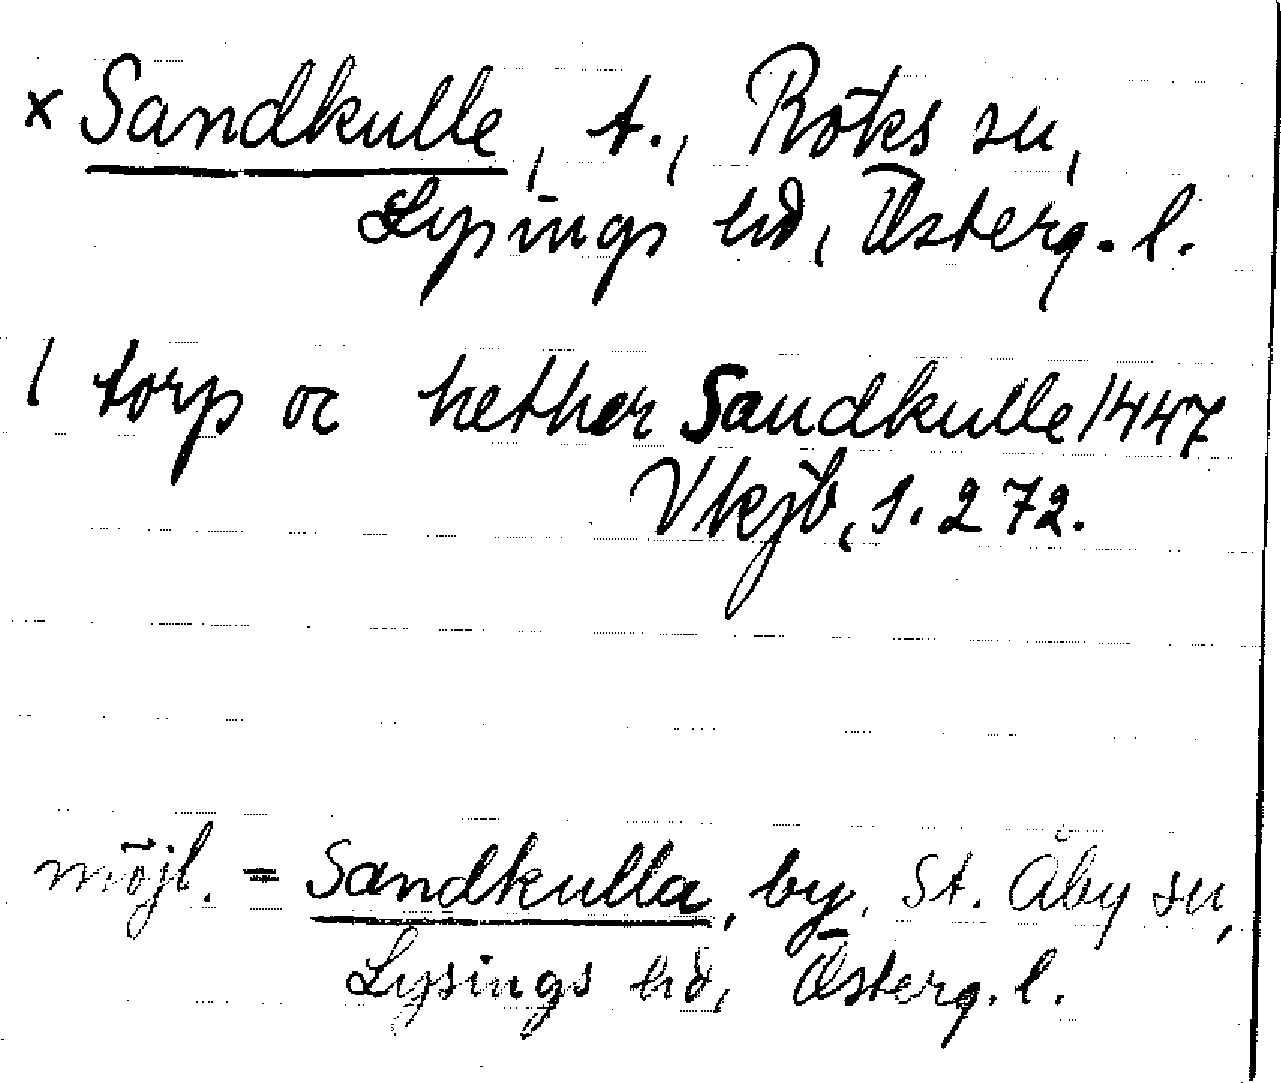 x Sandkulle, t., Röks sn,
Lysings hd, Österg. l.
1 torp oc hether Sandkulle 1447
Vkjb, s. 272.
möjl. = Sandkulla, by, St. Åby sn,
Lysings hd, Österg. l.